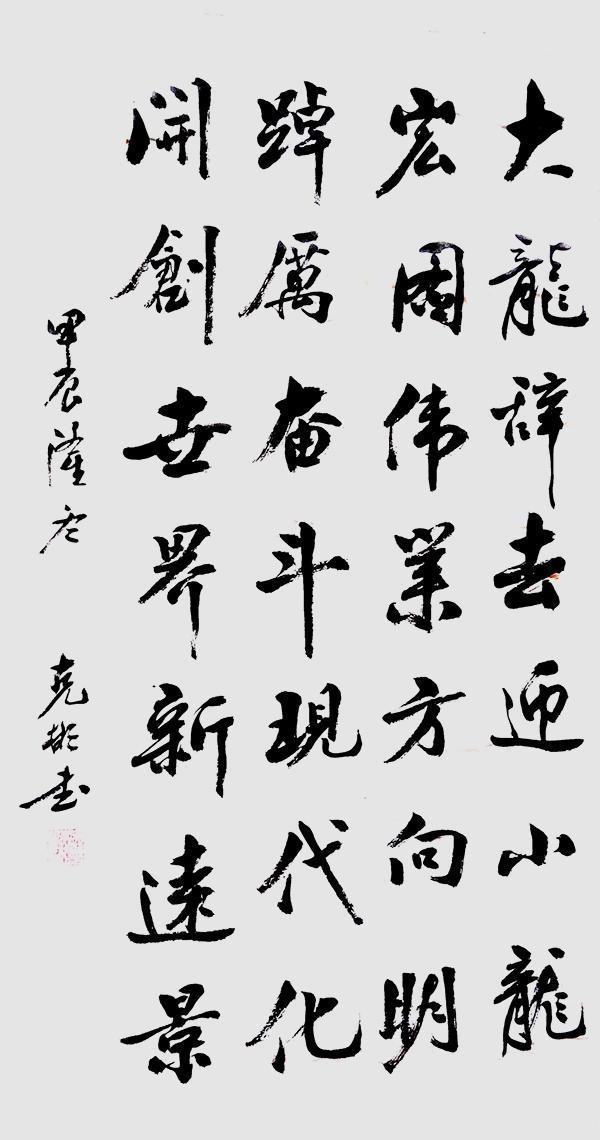 大龍辞去迎小龍
宏圖伟業方向明
踔厲奋斗現代化
開創世界新遠景
甲辰隆冬
尭彬书